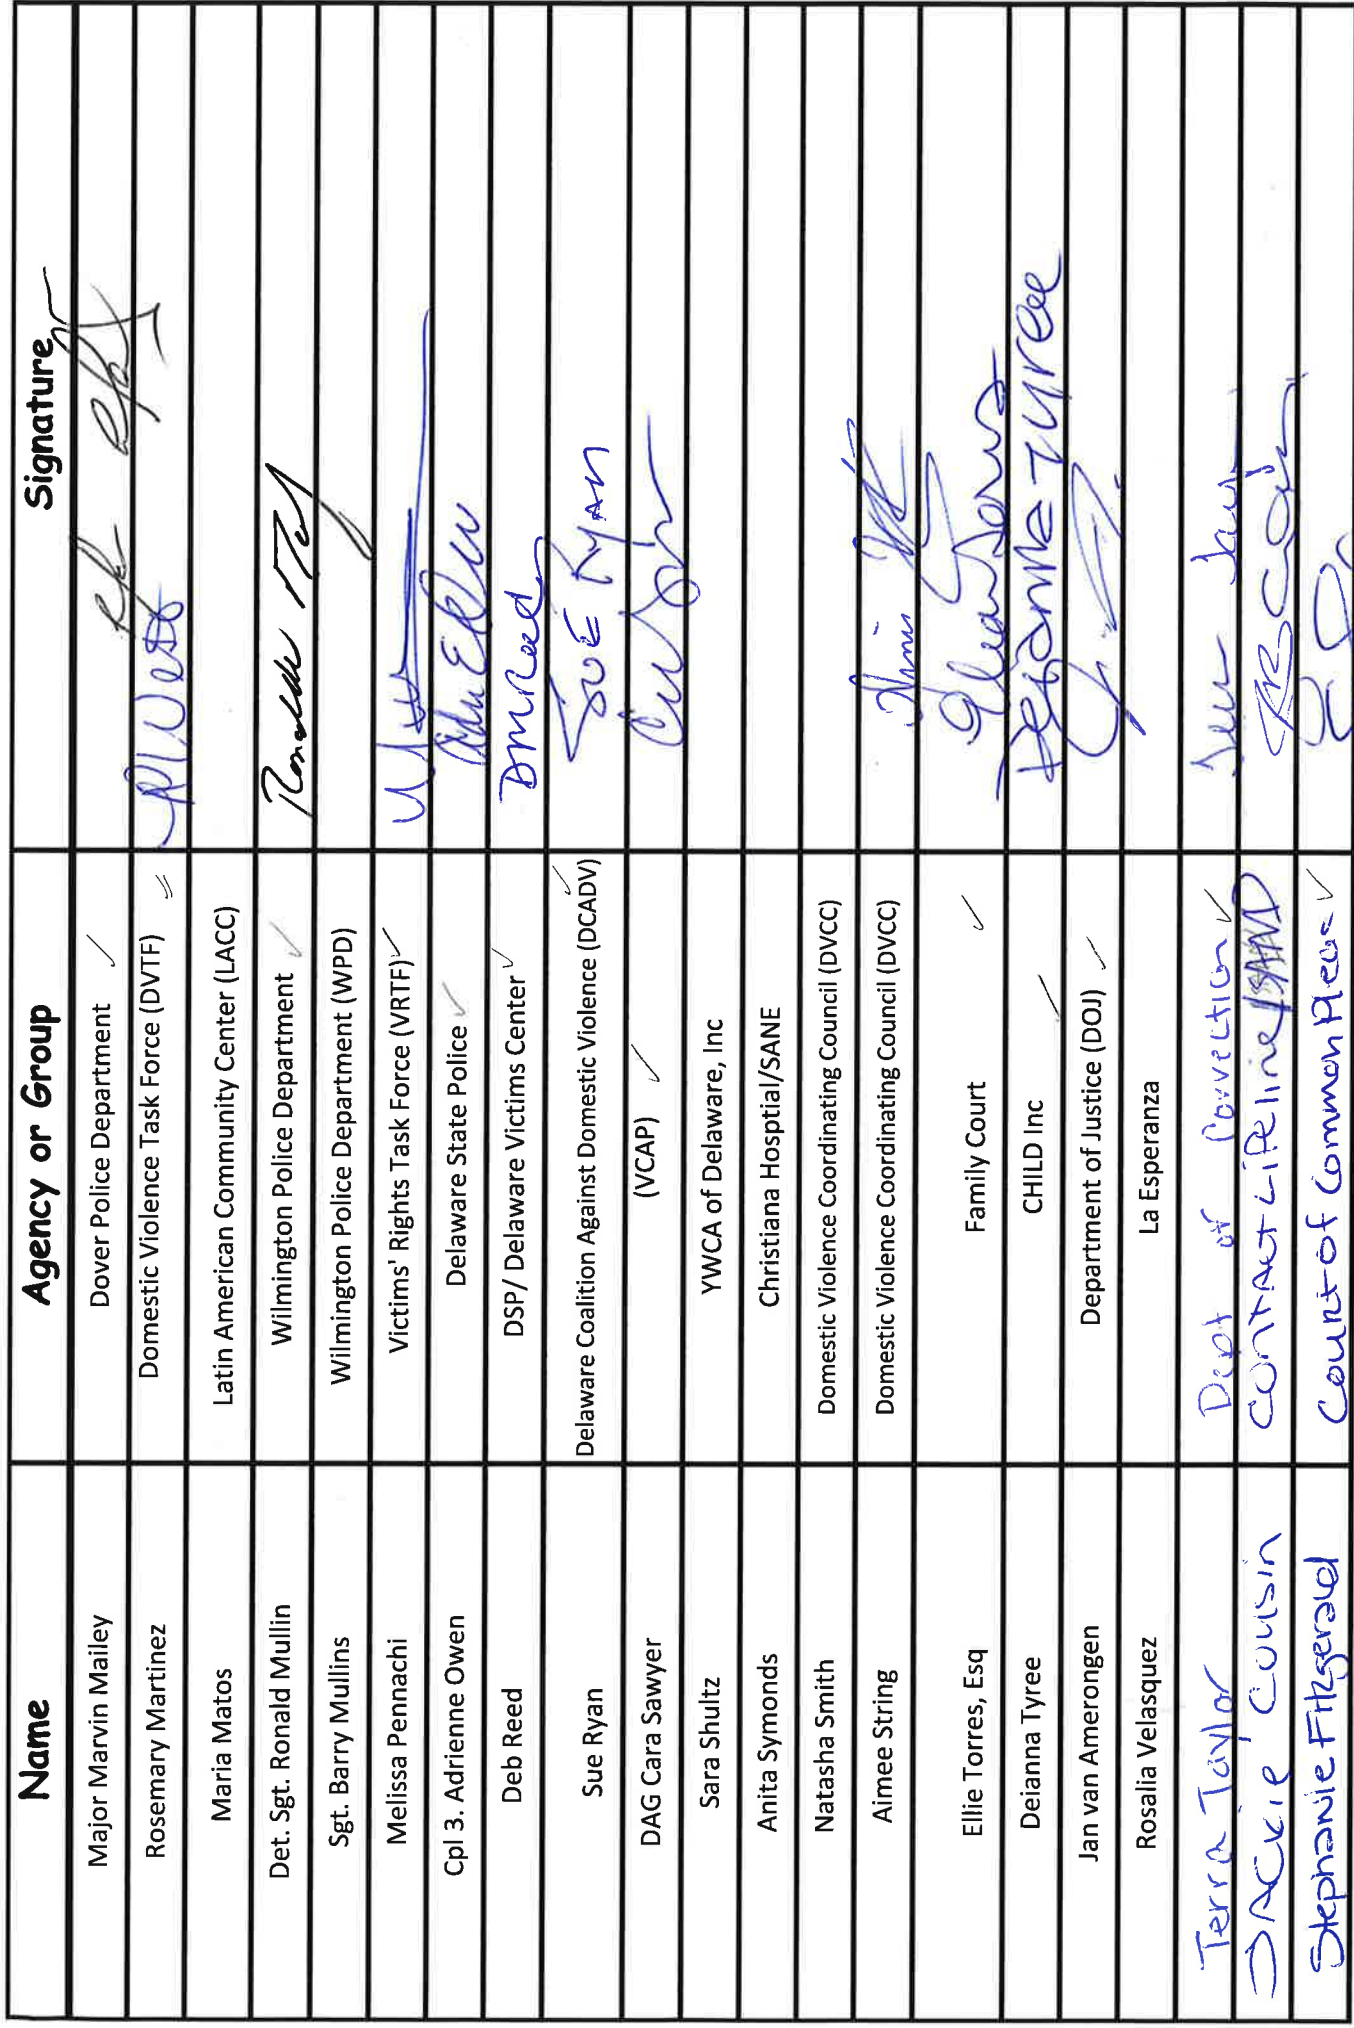 Name Agency or Group Signature
Major Marvin Mailey Dover Police Department ✓
Rosemary Martinez Domestic Violence Task Force (DVTF)
Maria Matos Latin American Community Center (LACC)
Det. Sgt. Ronald Mullin Wilmington Police Department ✓
Sgt. Barry Mullins Wilmington Police Department (WPD)
Melissa Pennachi Victims' Rights Task Force (VRTF) ✓
Cpl 3. Adrienne Owen Delaware State Police ✓
Deb Reed DSP/ Delaware Victims Center ✓ DMReed
Sue Ryan Delaware Coalition Against Domestic Violence (DCADV) ✓ SUE RYAN
DAG Cara Sawyer (VCAP) ✓
Sara Shultz YWCA of Delaware, Inc
Anita Symonds Christiana Hosptial/SANE
Natasha Smith Domestic Violence Coordinating Council (DVCC)
Aimee String Domestic Violence Coordinating Council (DVCC)
Ellie Torres, Esq Family Court ✓
Deianna Tyree CHILD Inc ✓ Deianna Tyree
Jan van Amerongen Department of Justice (DOJ) ✓
Rosalia Velasquez La Esperanza
Terra Taylor Dept of Correction ✓
JACKIE Cousin CONTACT LiFeline
Stephanie Fitzgerald Court of Common Pleas ✓